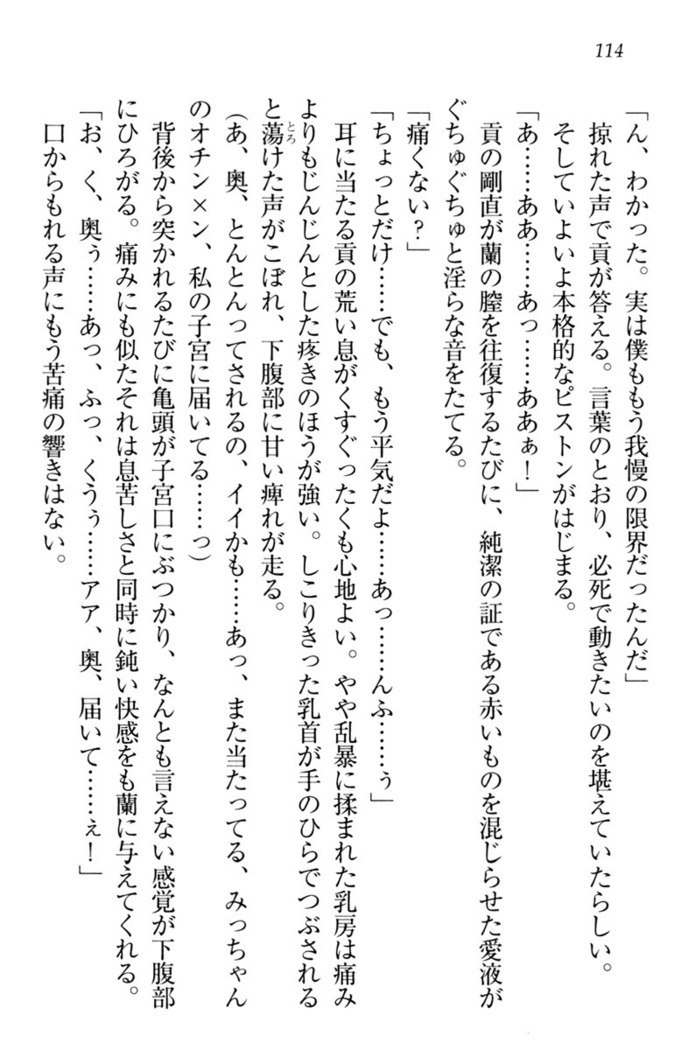 114
「ん、わかった。実は僕ももう我慢の限界だったんだ」
掠れた声で貢が答える。言葉のとおり、必死で動きたいのを堪えていたらしい。
そしていよいよ本格的なピストンがはじまる。
「あ……ああ……あっ……ああぁ！」
貢の剛直が蘭の膣を往復するたびに、純潔の証である赤いものを混じらせた愛液が
ぐちゅぐちゅと淫らな音をたてる。
「痛くない？」
「ちょっとだけ……でも、もう平気だよ……あっ……んふ……ぅ」
耳に当たる貢の荒い息がくすぐったくも心地よい。やや乱暴に揉まれた乳房は痛み
よりもじんじんとした疼きのほうが強い。しこりきった乳首が手のひらでつぶされる
と蕩けた声がこぼれ、下腹部に甘い痺れが走る。
とろ
（あ、奥、とんとんってされるの、イイかも……あっ、また当たってる、みっちゃん
のオチン×ン、私の子宮に届いてる……っ）
背後から突かれるたびに亀頭が子宮口にぶつかり、なんとも言えない感覚が下腹部
にひろがる。痛みにも似たそれは息苦しさと同時に鈍い快感をも蘭に与えてくれる。
「お、く、奥ぅ……あっ、ふっ、くうぅ……アア、奥、届いて……ぇ！」
口からもれる声にもう苦痛の響きはない。